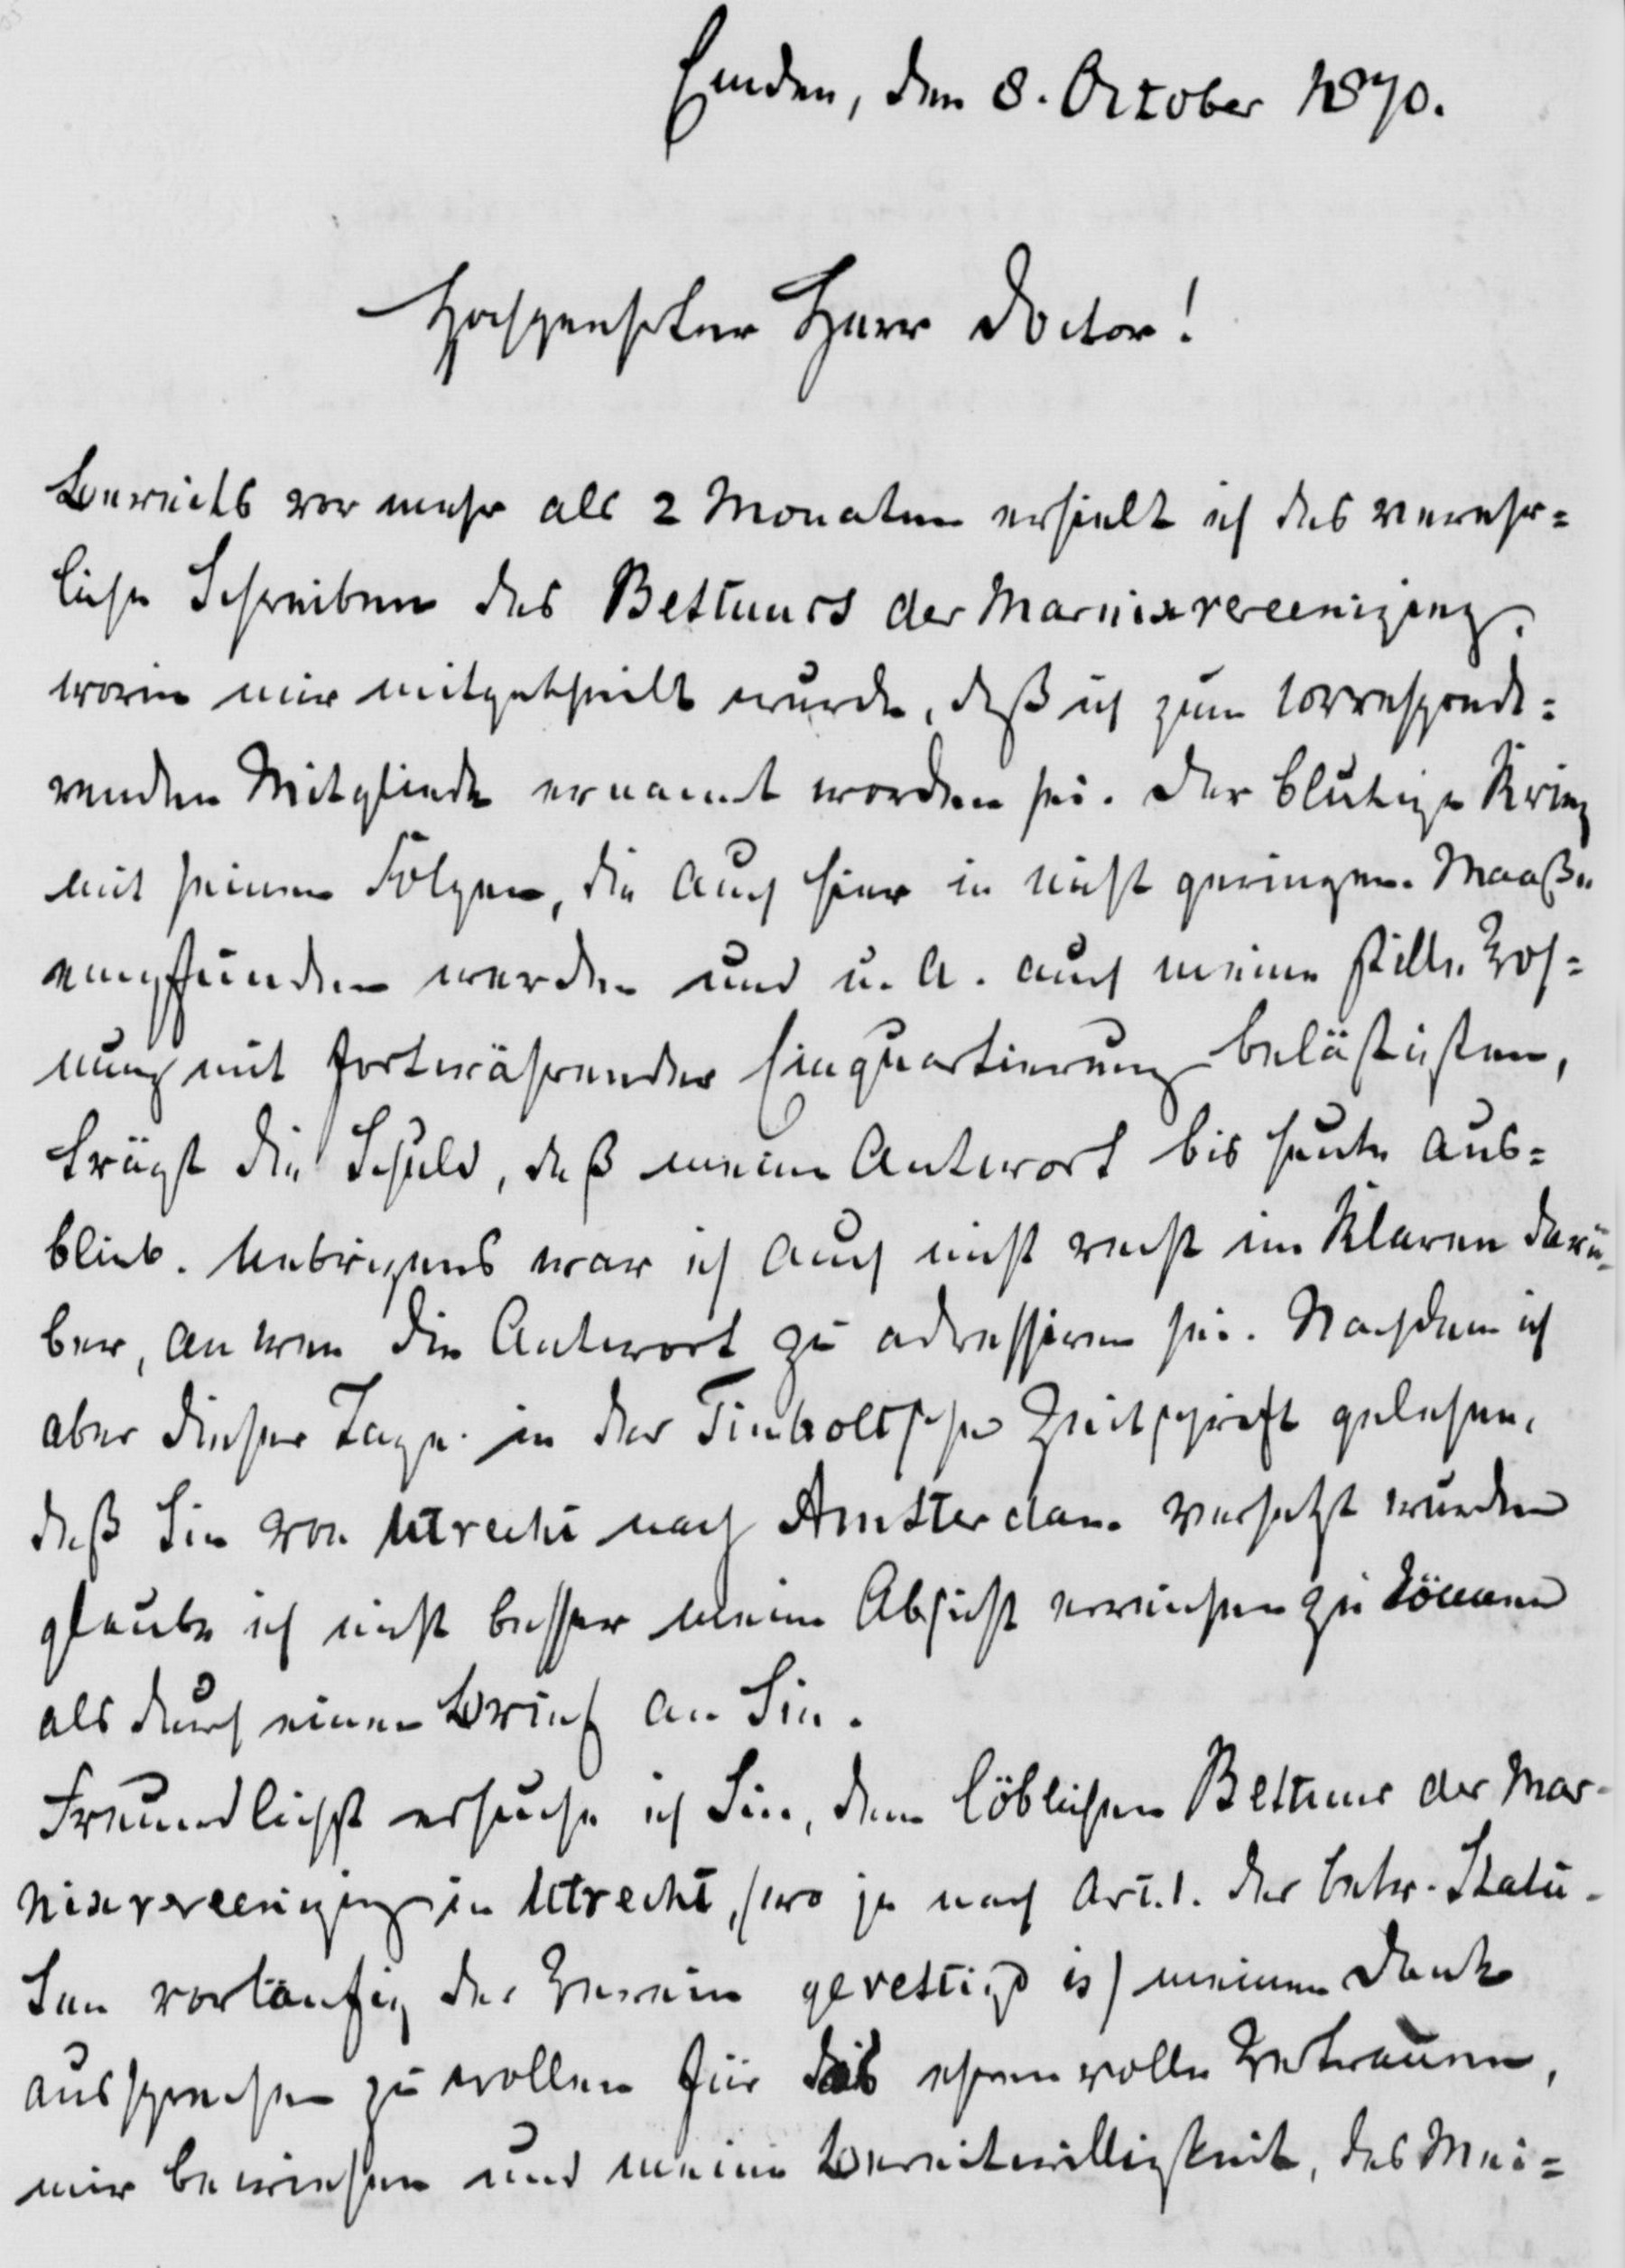 Emden, den 8. October 1870.
Hochgeehrter Herr Doctor!
Bereits vor mehr als 2 Monaten erhielt ich das verehr=
liche Schreiben des Bestuurs der Marnixvereeniging,
worin mir mitgetheilt wurde, daß ich zum correspondi=
renden Mitgliede ernannt worden sei. Der blutige Krieg
mit seinen Folgen, die auch hier in nicht geringem Maaße
empfunden werden und u. A. auch meine stille Woh=
nung mit fortwährender Einquartierung belästigten,
trägt die Schuld, daß meine Antwort bis heute aus=
blieb. Uebrigens war ich auch nicht recht im Klaren darü=
ber, an wen die Antwort zu adressiren sei. Nachdem ich
aber dieser Tage in der Tinholtschen Zeitschrift gelesen,
daß Sie von Utrecht nach Amsterdam versetzt wurden
glaube ich nicht besser meine Absicht erreichen zu können
als durch einen Brief an Sie.
Freundlichst ersuche ich Sie, dem löblichen Bestuur der Mar-
nixvereeniging in Utrecht, (wo ja nach Art. 1. der betr. Statu-
ten vorläufig der Verein gevestigd is) meinen Dank
aussprechen zu wollen für das ehrenvolle Vertrauen,
mir bewiesen und meine Bereitwilligkeit, das Mei=